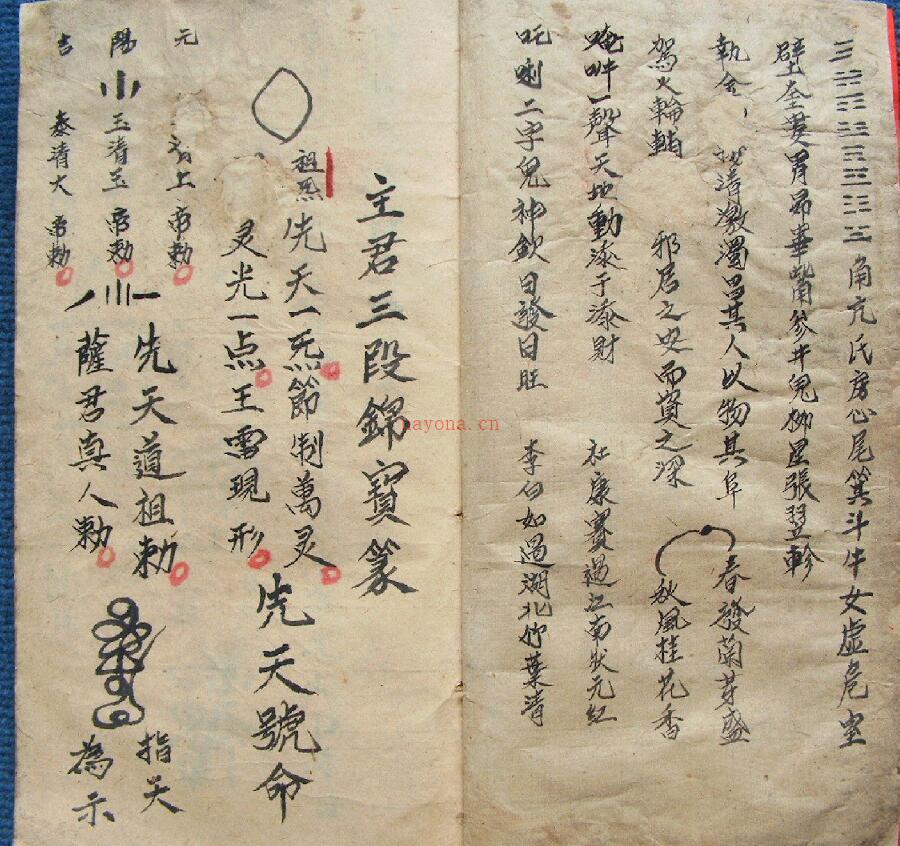 角亢氏房心尾箕斗牛女虚危室
壁奎娄胃昴畢觜参井鬼柳星張翌軫
執金 清激濁昌其人以物其阜
春發蘭芽盛
駕火輪轉 邪居之安而資之深
秋風桂花香
唵吽一聲天地動添丁添財
社康賽過江南狀元紅
吒唎二字鬼神欽日發日旺
李白如過湖北竹葉清
主君三段錦寶篆
祖炁 先天一炁節制萬灵
灵光一点王雷現形
先天號命
元 上 帝勅
陽 玉清玉 帝勅
吉 泰清大 帝勅
先天道祖勅
薩君真人勅
指天
為示
nayona.cn